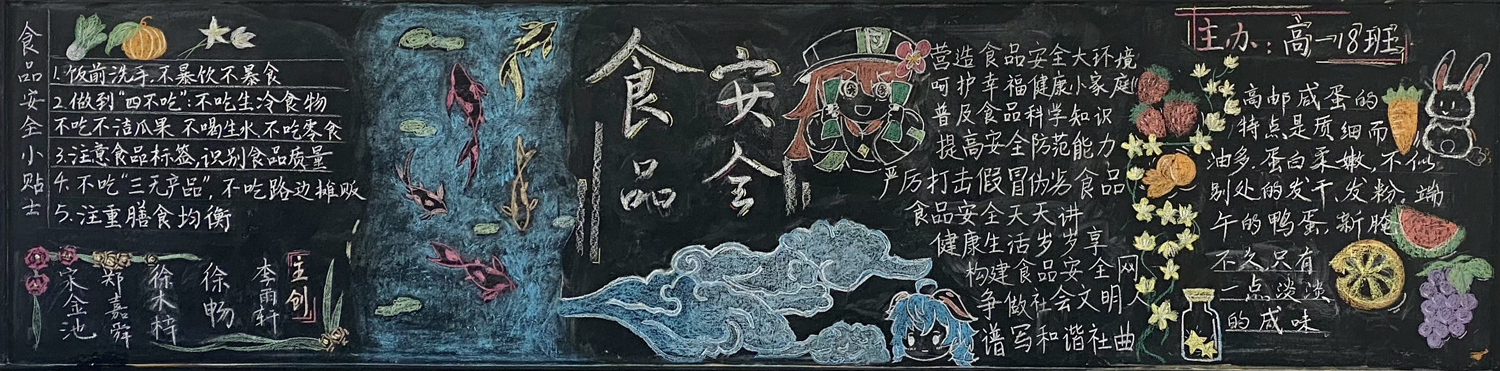 食品安全小贴士
1.饭前洗手,不暴饮不暴食
2.做到“四不吃”:不吃生冷食物
不吃不洁瓜果 不喝生水,不吃零食
3.注意食品标签,识别食品质量
4.不吃“三无产品”,不吃路边摊贩
5.注重膳食均衡
主创
李雨轩
徐畅
徐木梓
郑嘉舜
宋金池
食品
安全
营造食品安全大环境
呵护幸福健康小家庭
普及食品科学知识
提高安全防范能力
严厉打击假冒伪劣食品
食品安全天天讲
健康生活岁岁享
构建食品安全网
争做社会文明人
谱写和谐社曲
主办:高一18班
高邮咸蛋的
特点是质细而
油多.蛋白柔嫩,不似
别处的发干、发粉.端
午的鸭蛋,新腌
不久只有
一点淡淡
的咸味